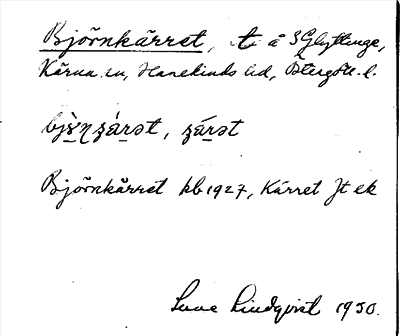 Björnkärret, t å S Glyttinge,
Kärna sn, Hanekinds hd, Östergötl. l.
bjɤ̀ŋʂá̱rət, ʂá̱rət
Björnkärret kb 1927, Kärret Jt ek
Sune Lindqvist 1930.